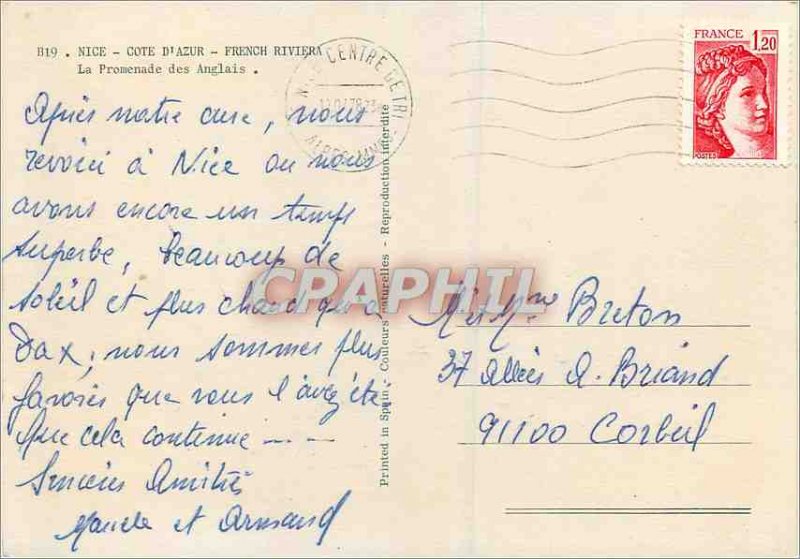 B19 . NICE - COTE D'AZUR - FRENCH RIVIERA
La Promenade des Anglais .
FRANCE 1,20
POSTES
NICE CENTRE DE TRI
ALPES MMES
Après notre cure, nous
revoici à Nice ou nous
avons encore un temps
superbe, beaucoup de
soleil et plus chaud qu'à
Dax, nous sommes plus
favorisés que vous l'avez été
Que cela continue ---
Sincères Amitiés
et Armand
Printed in Spain Couleurs naturelles - Reproduction interdite
CPAPHIL
Mr Mme Breton
37 Allées A. Briand
91100 Corbeil